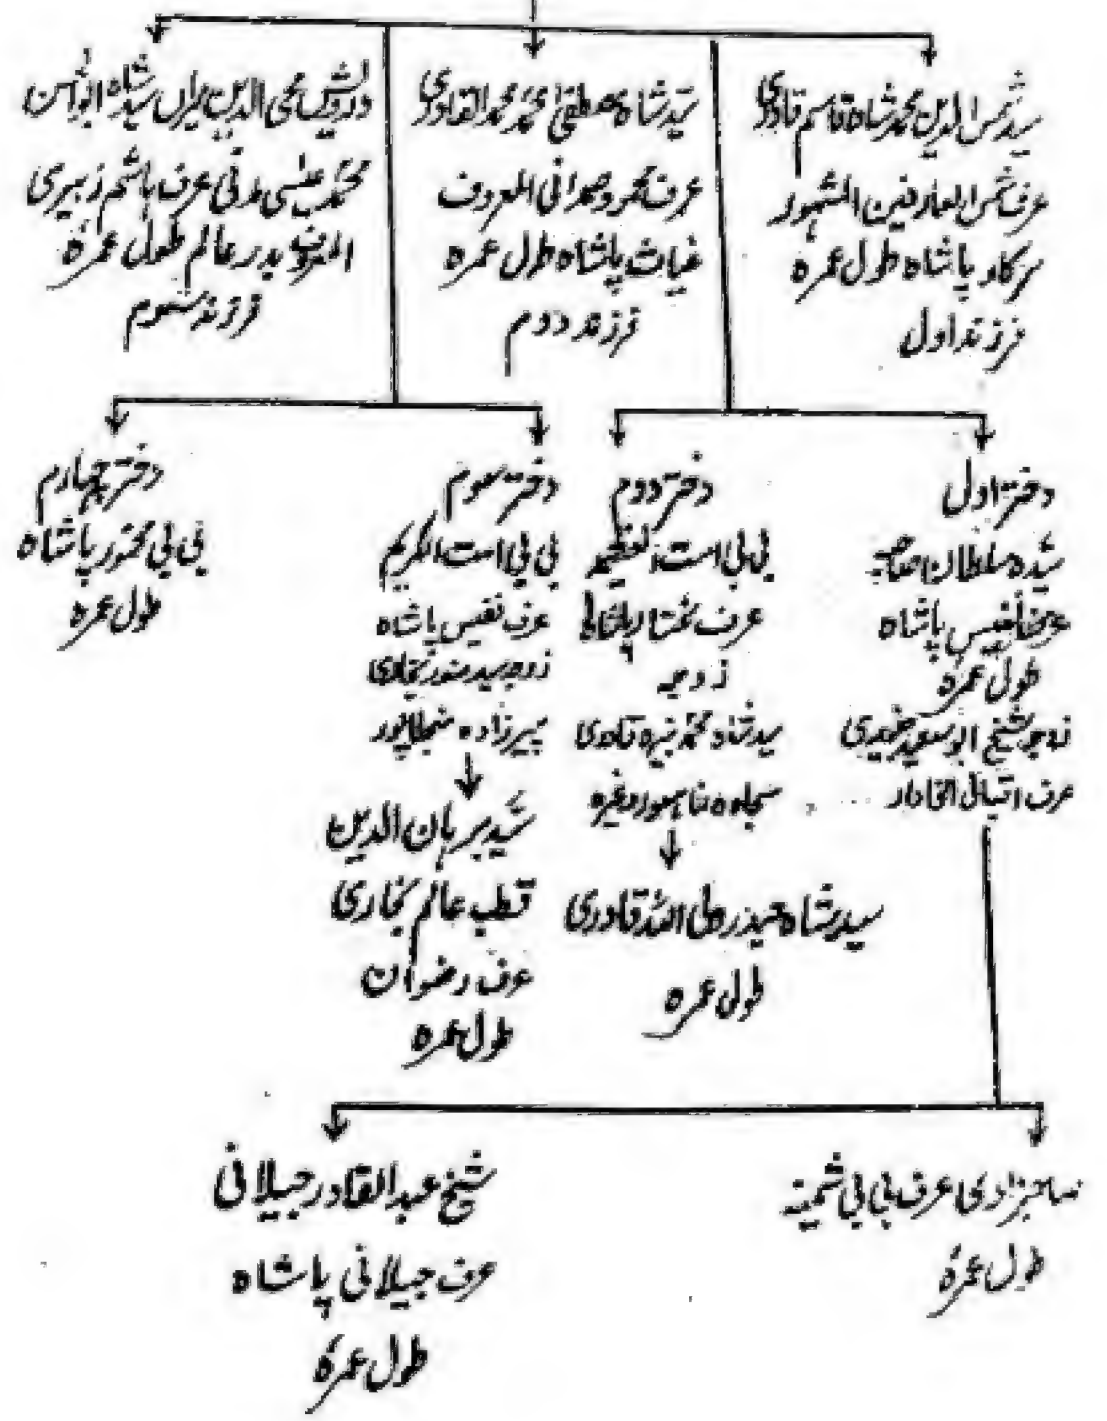 سید شمس الدین محمد شاہ قاسم قادری
عرف شمس العارفین المشہور
سرکار پاشاہ طول عمرہ
فرزند اول
سید شاہ مصطفیٰ محمد محمد القادری
عرف محمود صمدانی المعروف
غیاث پاشاہ طول عمرہ
فرزند دوم
درویش محی الدین پیراں سید شاہ ابوالحسن
محمد عیسیٰ مدنی عرف ہاشم زبیری
المعروف بدر عالم طول عمرہ
فرزند سوم
دختر اول
سیدہ سلطان
پاشاہ
طول عمرہ
زوجہ شیخ ابو سعید جنیدی
عرف اقبال
دختر دوم
بی بی امت العظیم
عرف مختار پاشاہ
زوجہ
سید شاہ محمد قادری
سجادہ وغیرہ
سید شاہ حیدر ولی اللہ قادری
طول عمرہ
دختر سوم
بی بی امت الکریم
عرف نفیس پاشاہ
زوجہ سید منور بخاری
پیرزادہ
سید برہان الدین
قطب عالم بخاری
عرف رضوان
طول عمرہ
دختر چہارم
بی بی پاشاہ
طول عمرہ
صاحبزادی عرف بی بی ثمینہ
طول عمرہ
شیخ عبدالقادر جیلانی
عرف جیلانی پاشاہ
طول عمرہ